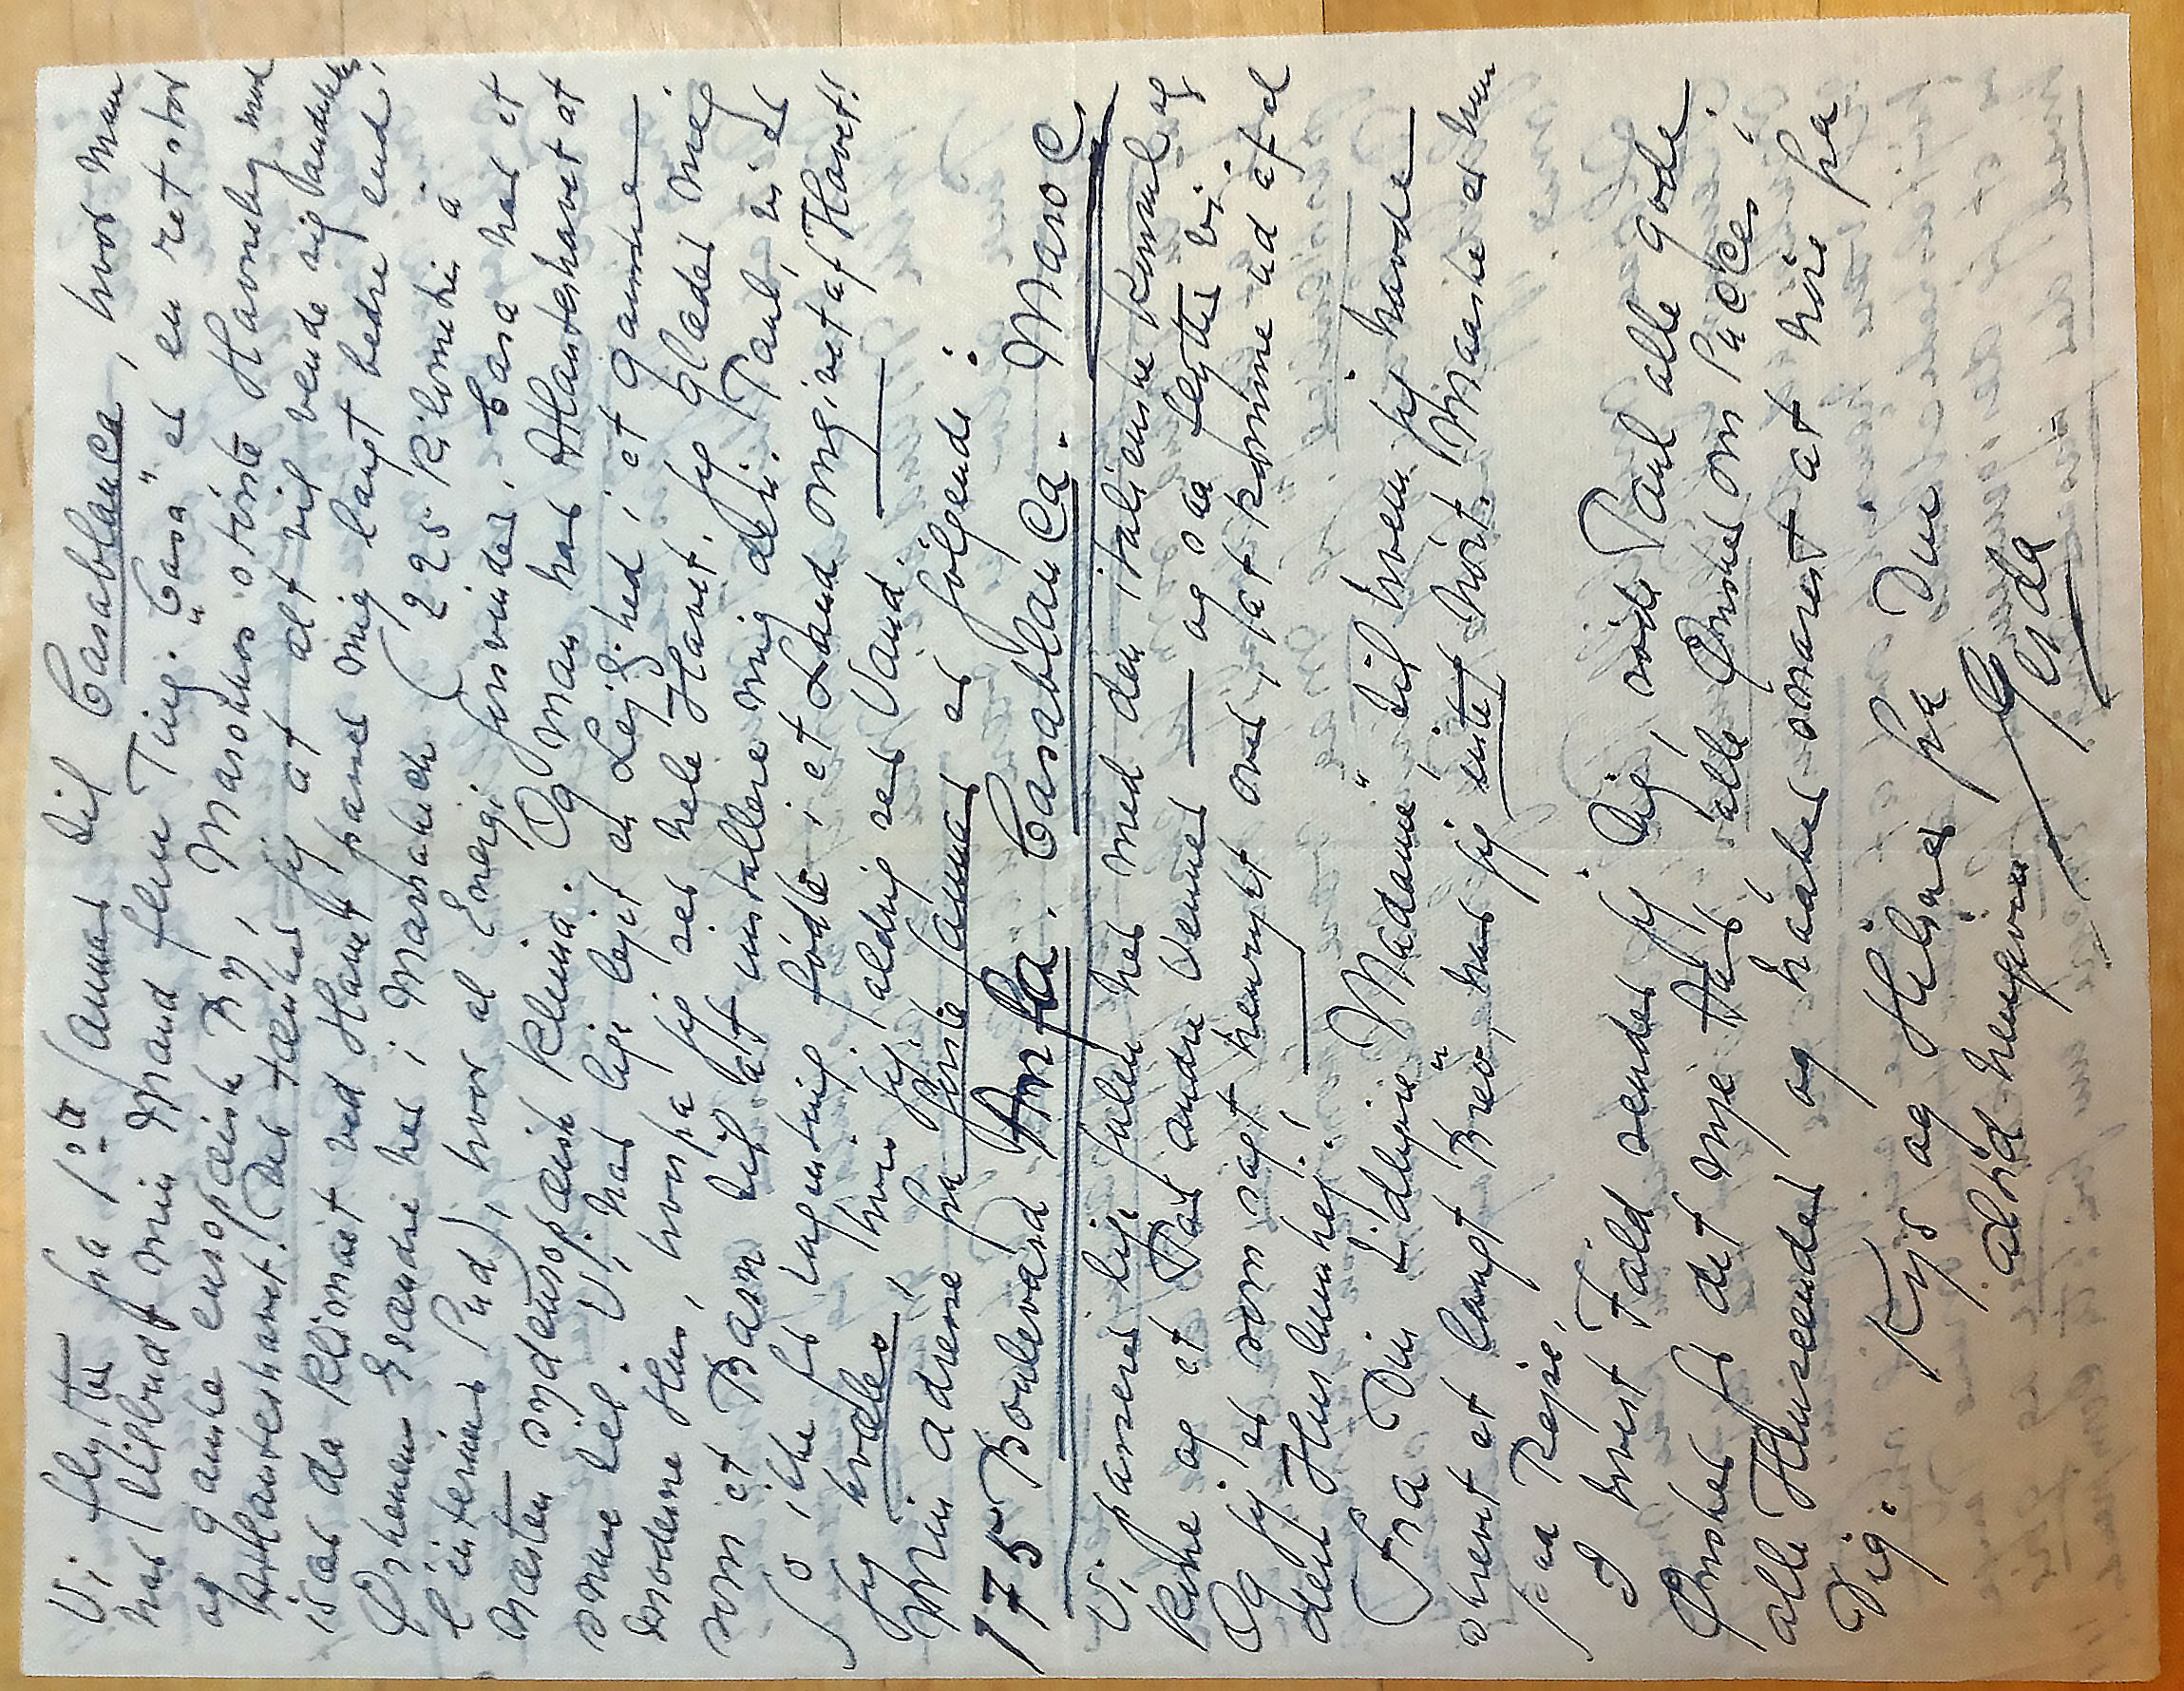 Vi flytter fra 1ste Januar til Casablanca, hvor man
har tilbudt min Mand flere Ting. "Casa" er en ret stor
og ganske europæisk By, Marokkos største Havneby mod
Atlanterhavet. Der tænker jeg at alt vil vende sig anderledes,
især da Klimaet ved Havet passer mig langt bedre end
Ørkenen Grændse her i Marrakech (225 Kilometer à
l'interieur Sud), hvor al Energi forsvinder. Casa har et
næsten sydeuropæisk Klima. Og man har Atlanterhavet at
snuse til. Vi har lige lejet en Lejlighed i et ganske
moderne Hus, hvorfra jeg ser hele Havet. Jeg glæder mig
som et Barn til at installere mig deri. Paul, vi er
jo ikke for ingenting fødte i et Land omgivet af Havet!
Jeg kvæles, hvis jeg aldrig ser Vand. —
Min adresse fra første Januar er følgende:
175 Boulevard Anfa. Casablanca. Maroc.
Vi passerer lige Julen her med den italienske Konsul og
Kone og et Par andre Venner — og saa flytter vi.
Og jeg er som sagt henrykt over, at komme ud af al
den Huslumhej! —
Fra Din tidligere "Madame", til hvem jeg havde
skrevet et langt Brev, har jeg intet hørt. Maaske er hun
paa Rejse.
I hvert Fald sender jeg Dig, søde Paul alle gode
Ønsker for det nye Aar, alle Ønsker om Succes i
alle Henseender og haaber snarest at høre fra
Dig.
Kys og Hilsner fra Din
altid hengivne
Gerda